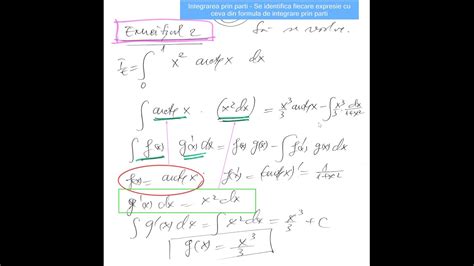 Integrarea prin parti - Se identifica fiecare expresie cu
ceva din formula de integrare prin parti
Exercițiul 2 Să se rezolve.
I₂ = ∫₀¹ x² arctg x dx
∫ arctg x · (x² dx) = x³/3 arctg x - ∫ x³/3 · dx/(1+x²)
∫ f(x) g'(x) dx = f(x) g(x) - ∫ f'(x) g(x) dx
f(x) = arctg x; f'(x) = (arctg x)' = 1/(1+x²)
g'(x) dx = x² dx
∫ g'(x) dx = ∫ x² dx = x³/3 + C
g(x) = x³/3